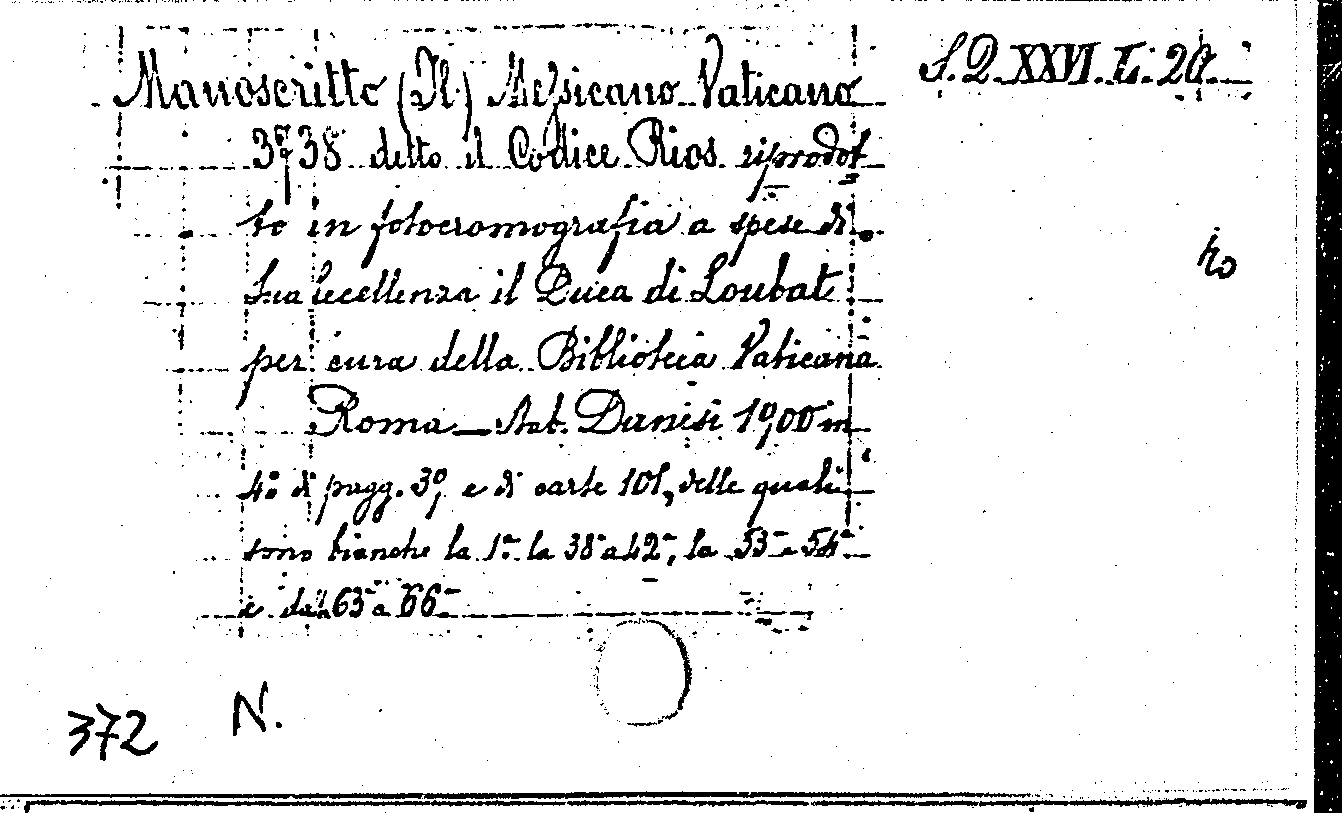 Manoscritto (Il) Messicano Vaticano
S. Q. XXVI. L. 20.
3738 detto il Codice Rios riprodot
to in fotocromografia a spese di
Sua Eccellenza il Duca di Loubat
per cura della Biblioteca Vaticana
Roma — Stab. Danesi 1900 in
4.º di pagg. 39 e di carte 101, delle quali
sono bianche la 1.ª la 38ª a 42ª, la 53ª e 54ª
e dalla 63ª a 66ª
372 N.